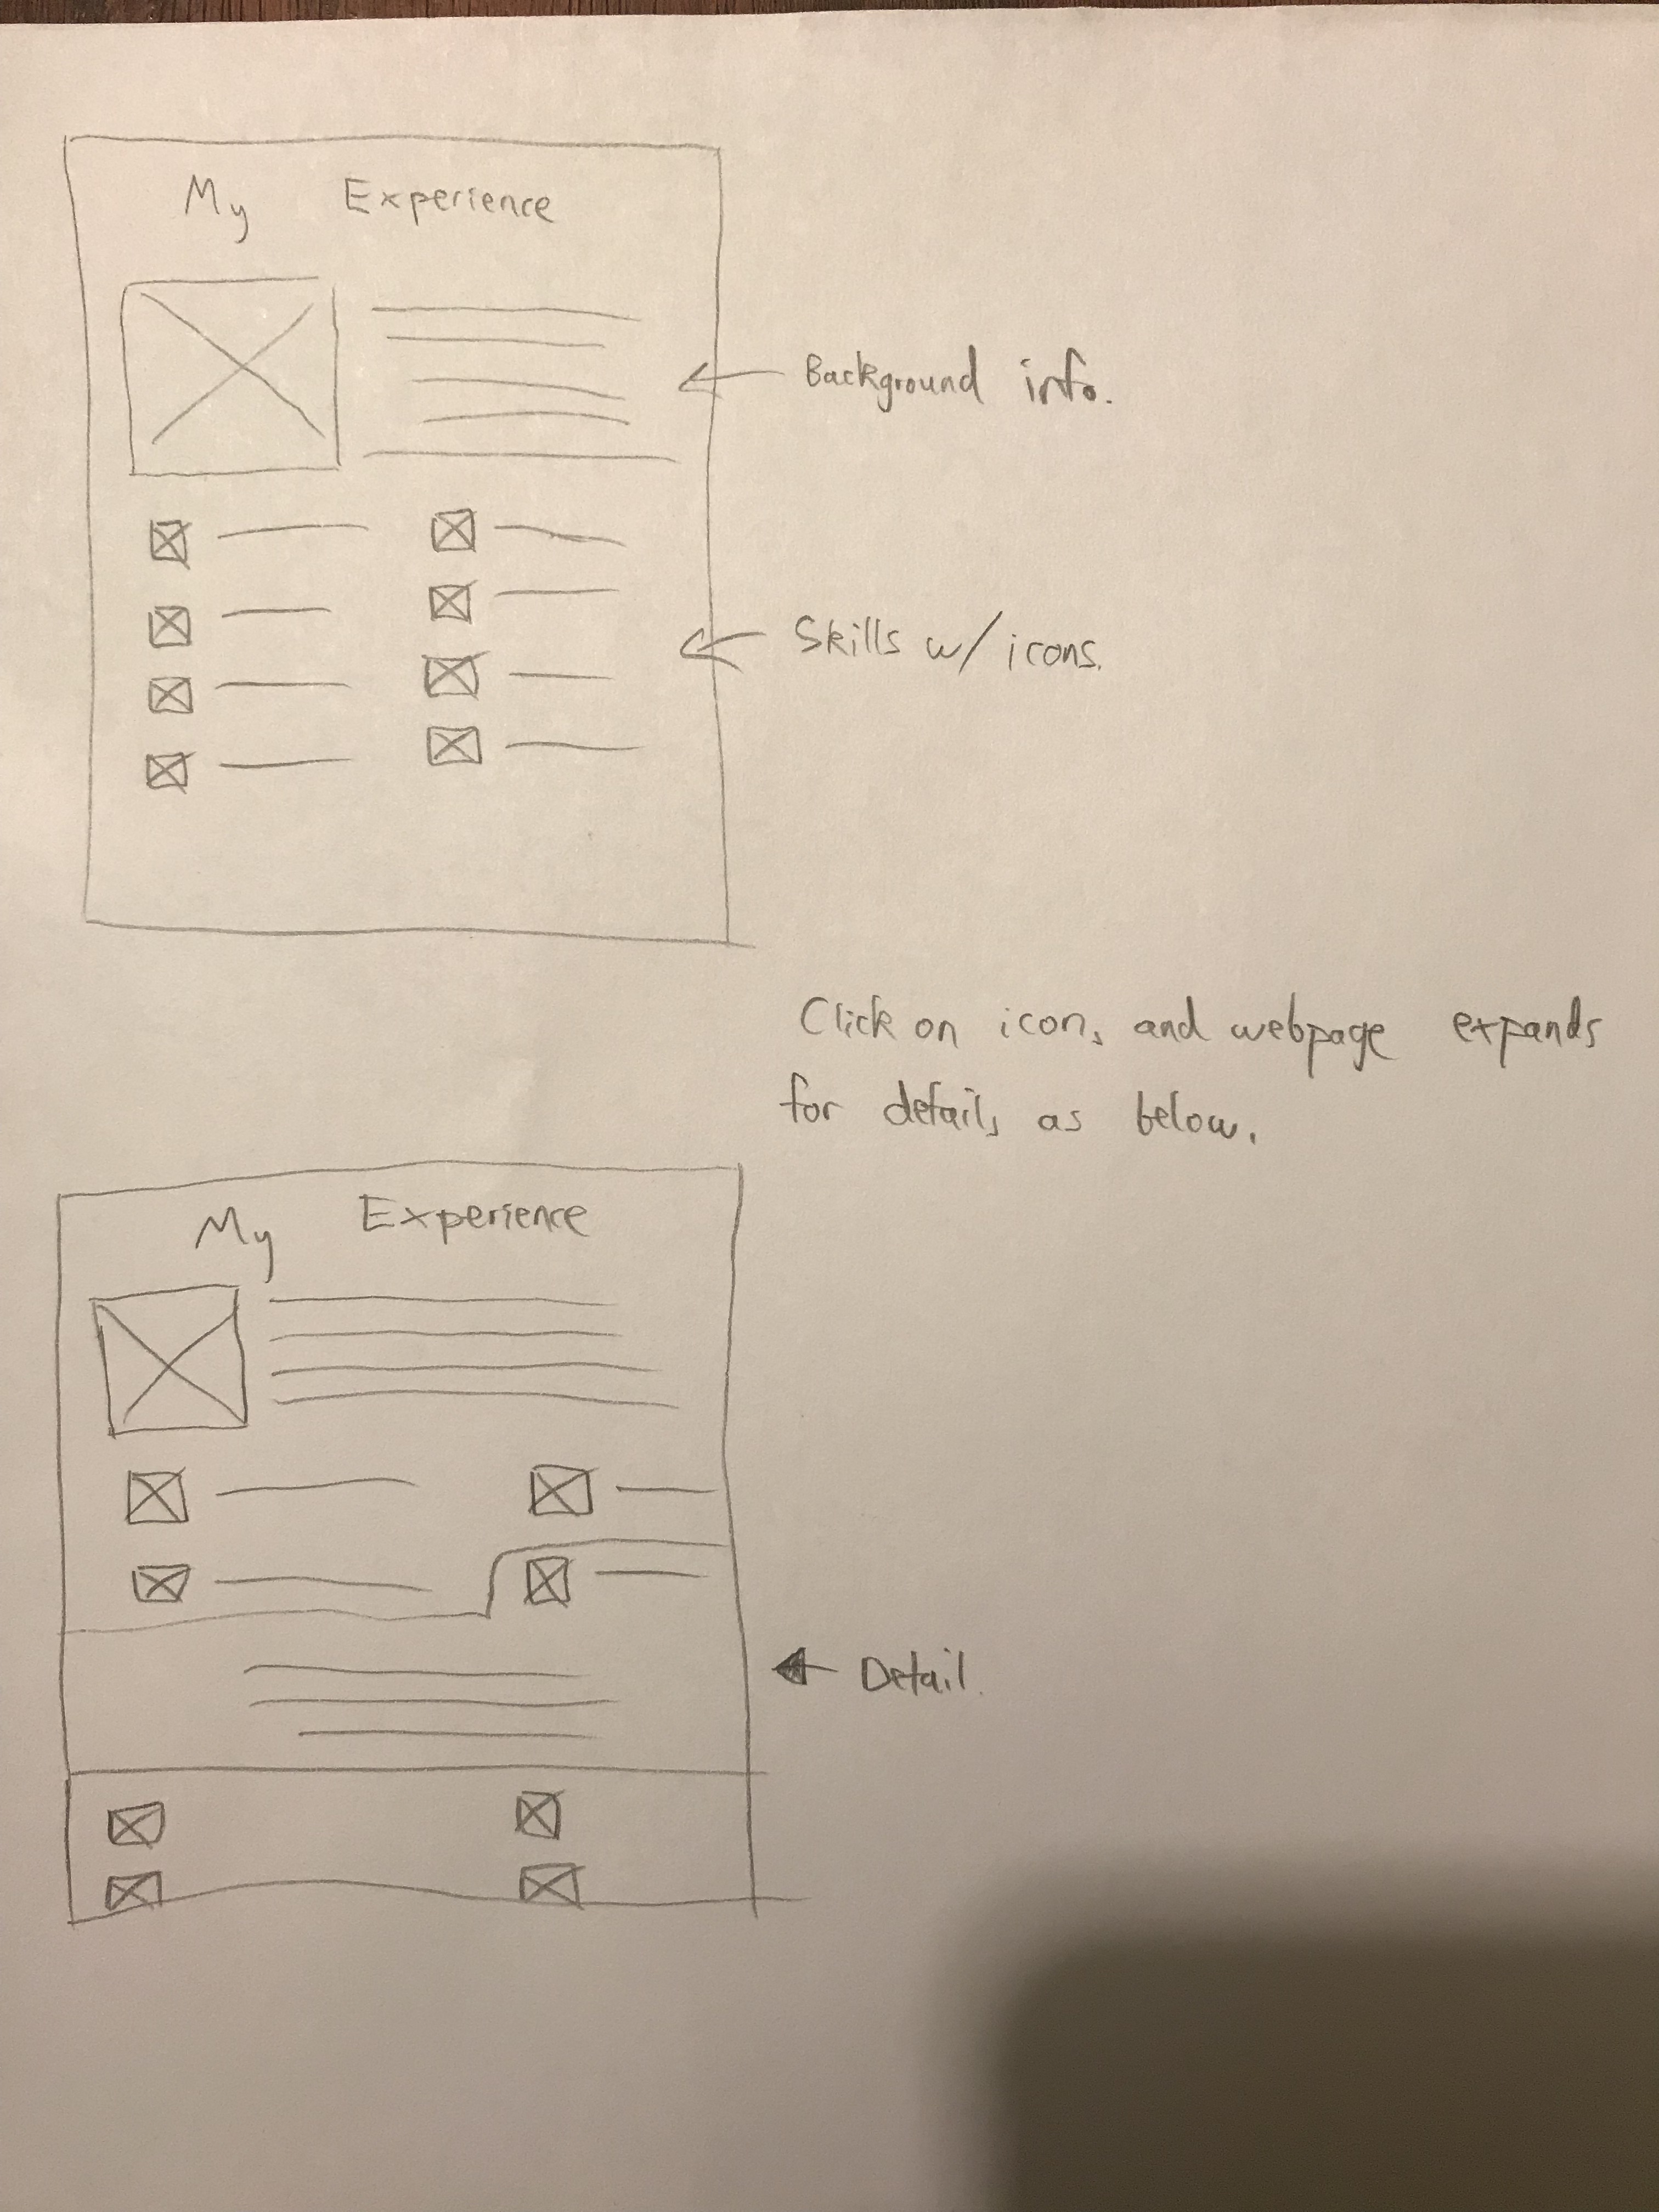 My Experience
Background info.
Skills w/ icons.
Click on icon, and webpage expands
for details as below.
My Experience
Detail.